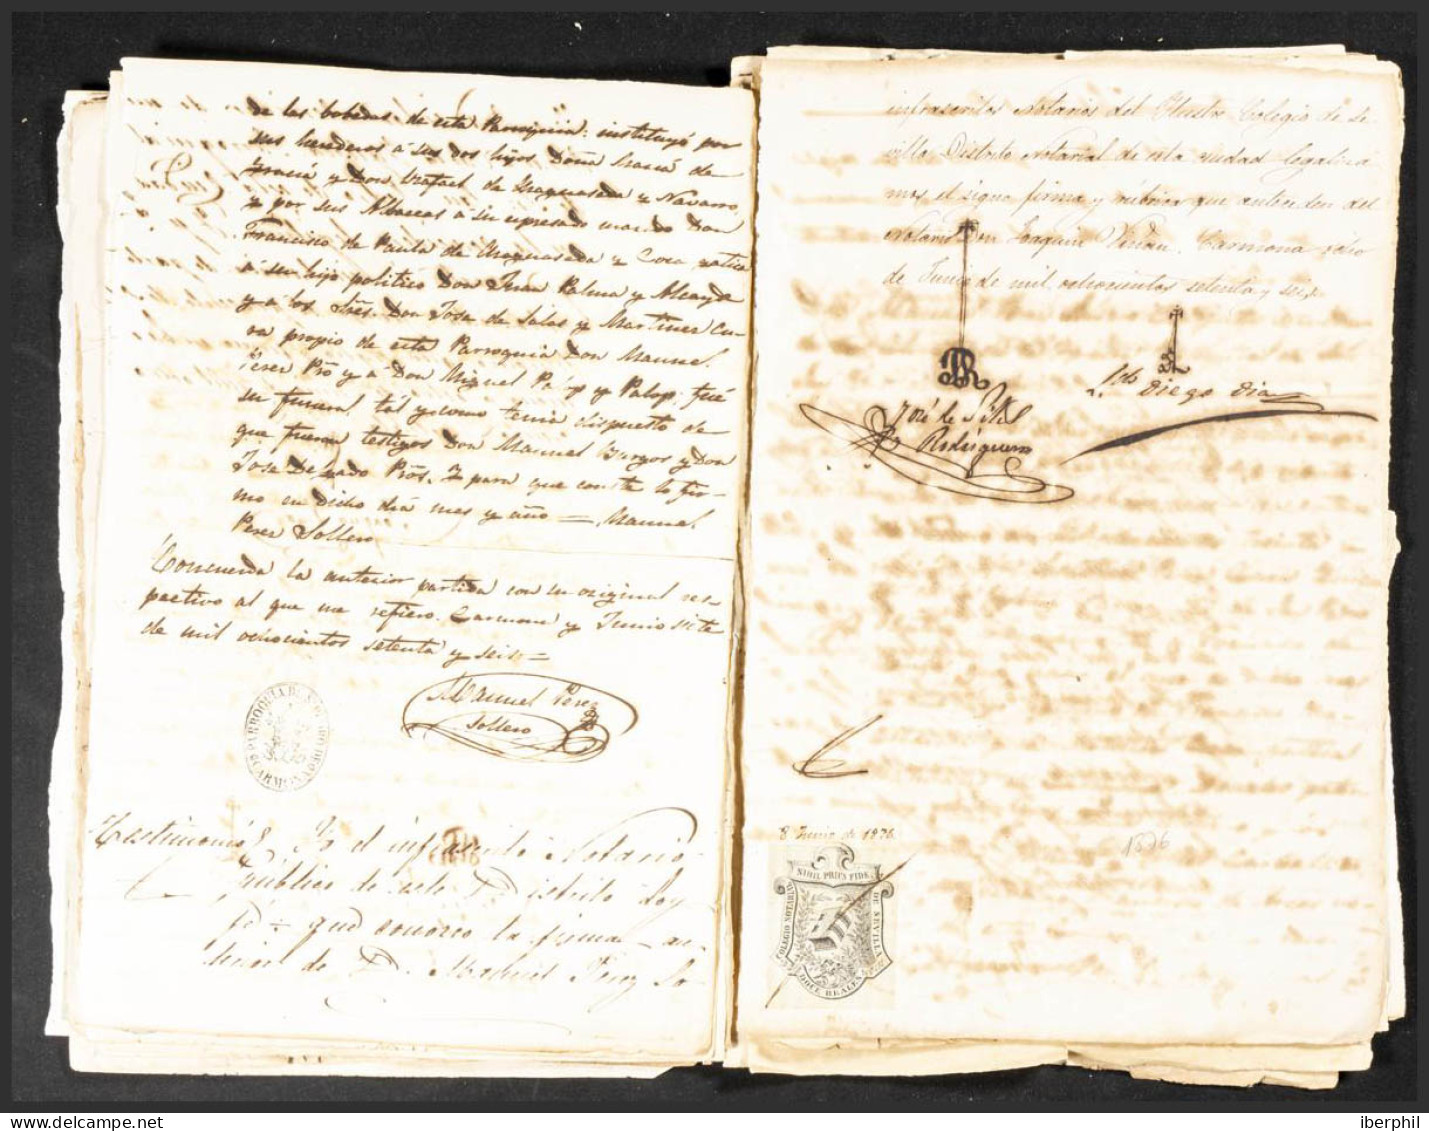 de las bobedas de esta Parroquia: instituyó por
sus herederos á sus dos hijos Doña Maria de
Gracia y Don Rafael de Navarro,
y por sus Albaceas á su espresado marido Don
Francisco de Paula de y Coca
á su hijo politico Don Juan Palma y
y a los Tres. Don Jose de Salas y Martinez Cu-
ra propio de esta Parroquia Don Manuel
Perez Pro y á Don Miguel Palop y Palop: fué
su funeral tál y como tenia dispuesto de
que fueron testigos Don Manuel Burgos y Don
Jose Delgado Pros. Y para que conste lo fir-
mo en dicho dia mes y año = Manuel
Perez Sollero
Concuerda la anterior partida con su original res-
pectivo al que me refiero. Carmona y Junio siete
de mil ochocientos setenta y seis =
Manuel Perez
Sollero
PARROQUIA DE
CARMONA
Testimonio Yo el infrascrito Notario
Público de este Distrito Doy
fé = que conozco la firma an-
terior de D. Manuel Perez So-
infrascritos Notarios del Ilustre Colegio de Se-
villa Distrito Notarial de esta ciudad legaliza
mos el signo firma y rúbrica que anteceden del
Notario Don Joaquin Carmona ocho
de Junio de mil ochocientos setenta y seis.
José de
Rodriguez
Ldo Diego Dia
8 Junio de 1876.
1876
NIHIL PRIUS FIDE
COLEGIO NOTARIAL
DE SEVILLA
DOCE REALES
delcampe.net
iberphil